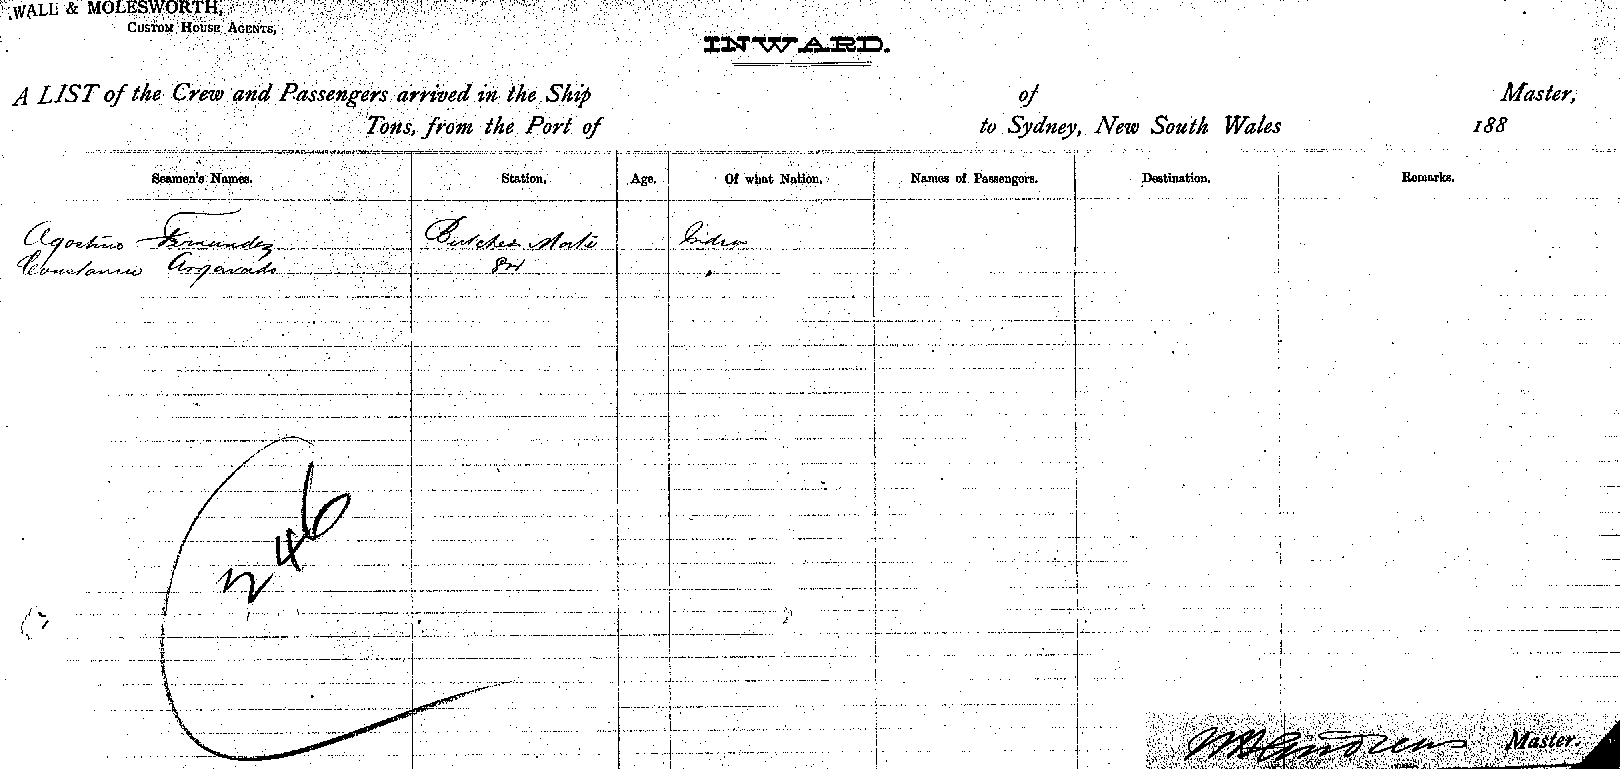 WALL & MOLESWORTH,
CUSTOM HOUSE AGENTS,
INWARD.
A LIST of the Crew and Passengers arrived in the Ship of Master,
Tons, from the Port of to Sydney, New South Wales 188
Seamen's Names. Station. Age. Of what Nation. Names of Passengers. Destination. Remarks.
Agostino Fernandez Butchers Mate India
246
Master.